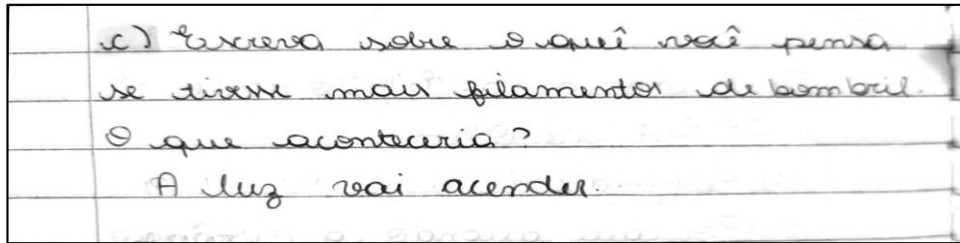 c) Escreva sobre o quê você pensa
se tivesse mais filamentos de bombril.
O que aconteceria?
A luz vai acender.